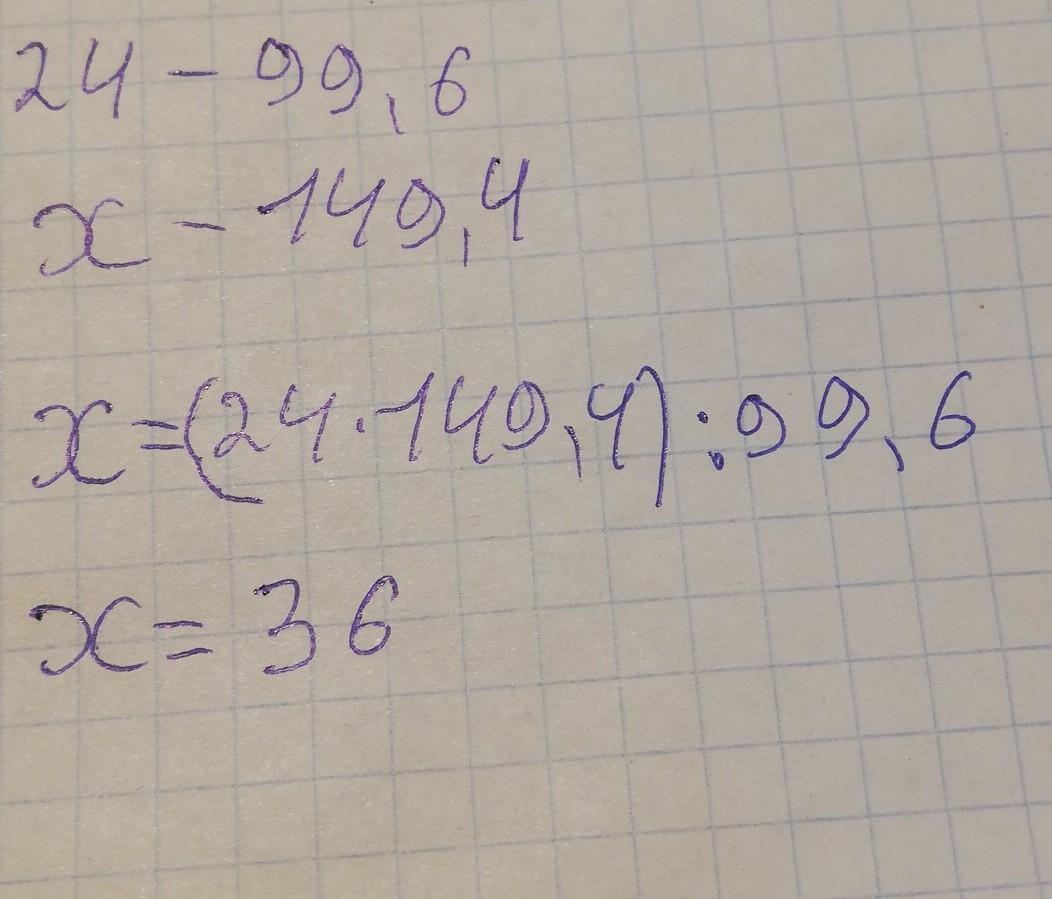 24 - 99,6
x - 149,4
x=(24·149,4):99,6
x= 36